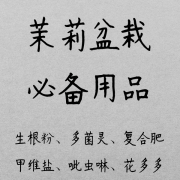 茉莉盆栽
必备用品
生根粉、多菌灵、复合肥
甲维盐、吡虫啉、花多多